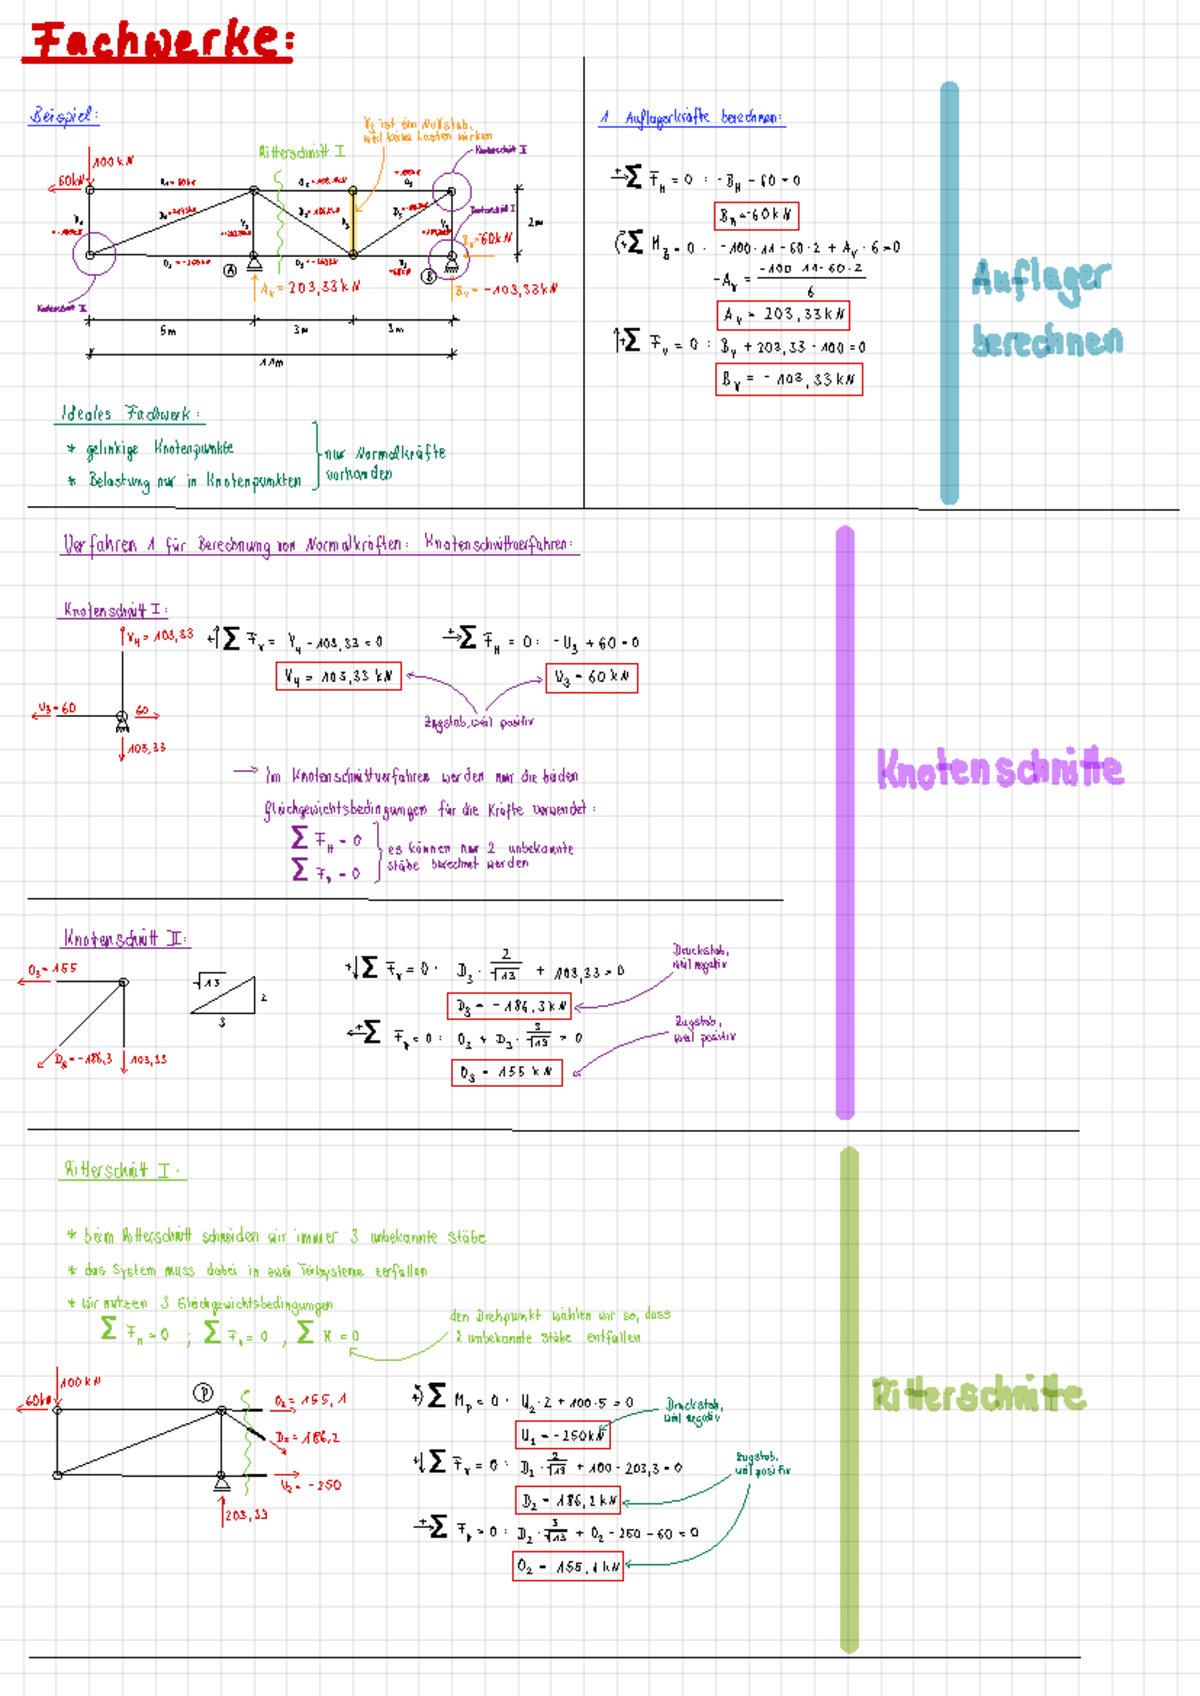 Fachwerke:
Beispiel:
V3 ist ein Nullstab,
weil keine Lasten wirken
Ritterschnitt I
Knotenschnitt II
100 kN
60kN
2m
A
B
Av = 203,33 kN
Bv = -103,33 kN
5m
3m
3m
11m
Ideales Fachwerk:
* gelinkige Knotenpunkte
* Belastung nur in Knotenpunkten
nur Normalkräfte
vorhanden
1 Auflagerkräfte berechnen:
→+ ∑ FH = 0 : -BH - 60 = 0
BH = -60 kN
∑ MB = 0 : -100·11 - 60·2 + Av · 6 = 0
-Av = (-100·11-60·2)/6
Av = 203,33 kN
↑+ ∑ Fv = 0 : Bv + 203,33 - 100 = 0
Bv = -103,33 kN
Auflager
berechnen
Verfahren 1 für Berechnung von Normalkräften: Knotenschnittverfahren:
Knotenschnitt I:
V4 = 103,33
U3 = 60
60
103,33
+↑ ∑ Fv = V4 - 103,33 = 0
V4 = 103,33 kN
→+ ∑ FH = 0 : -U3 + 60 = 0
U3 = 60 kN
Zugstab, weil positiv
→ Im Knotenschnittverfahren werden nur die beiden
Gleichgewichtsbedingungen für die Kräfte verwendet:
∑ FH = 0
∑ Fv = 0
es können nur 2 unbekannte
Stäbe berechnet werden
Knotenschnitte
Knotenschnitt II:
O3 = 155
D3 = -186,3
103,33
√13
2
3
+↓ ∑ Fv = 0 : D3 · 2/√13 + 103,33 = 0
D3 = -186,3 kN
Druckstab,
weil negativ
←+ ∑ FH = 0 : O3 + D3 · 3/√13 = 0
O3 = 155 kN
Zugstab,
weil positiv
Ritterschnitt I:
* beim Ritterschnitt schneiden wir immer 3 unbekannte Stäbe
* das System muss dabei in zwei Teilsysteme zerfallen
* wir nutzen 3 Gleichgewichtsbedingungen
∑ FH = 0 ; ∑ Fv = 0 , ∑ M = 0
den Drehpunkt wählen wir so, dass
2 unbekannte Stäbe entfallen
100 kN
60kN
P
O2 = 155,1
D2 = 186,2
U2 = -250
203,33
∑ Mp = 0 : U2·2 + 100·5 = 0
U1 = -250kN
Druckstab,
weil negativ
+↓ ∑ Fv = 0 : D1 · 2/√13 + 100 - 203,3 = 0
D2 = 186,2 kN
Zugstab,
weil positiv
→+ ∑ FH = 0 : D2 · 3/√13 + O2 - 250 - 60 = 0
O2 = 155,1 kN
Ritterschnitte